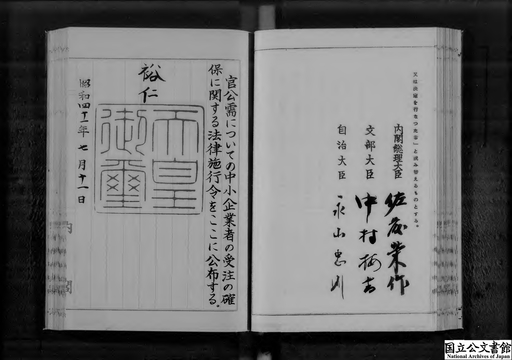 」と読み替えるものとする。
内閣総理大臣 佐藤栄作
文部大臣 中村梅吉
自治大臣 永山忠則
官公需についての中小企業者の受注の確
保に関する法律施行令をここに公布する。
裕仁
天皇
御璽
昭和四十一年七月十一日
国立公文書館
National Archives of Japan